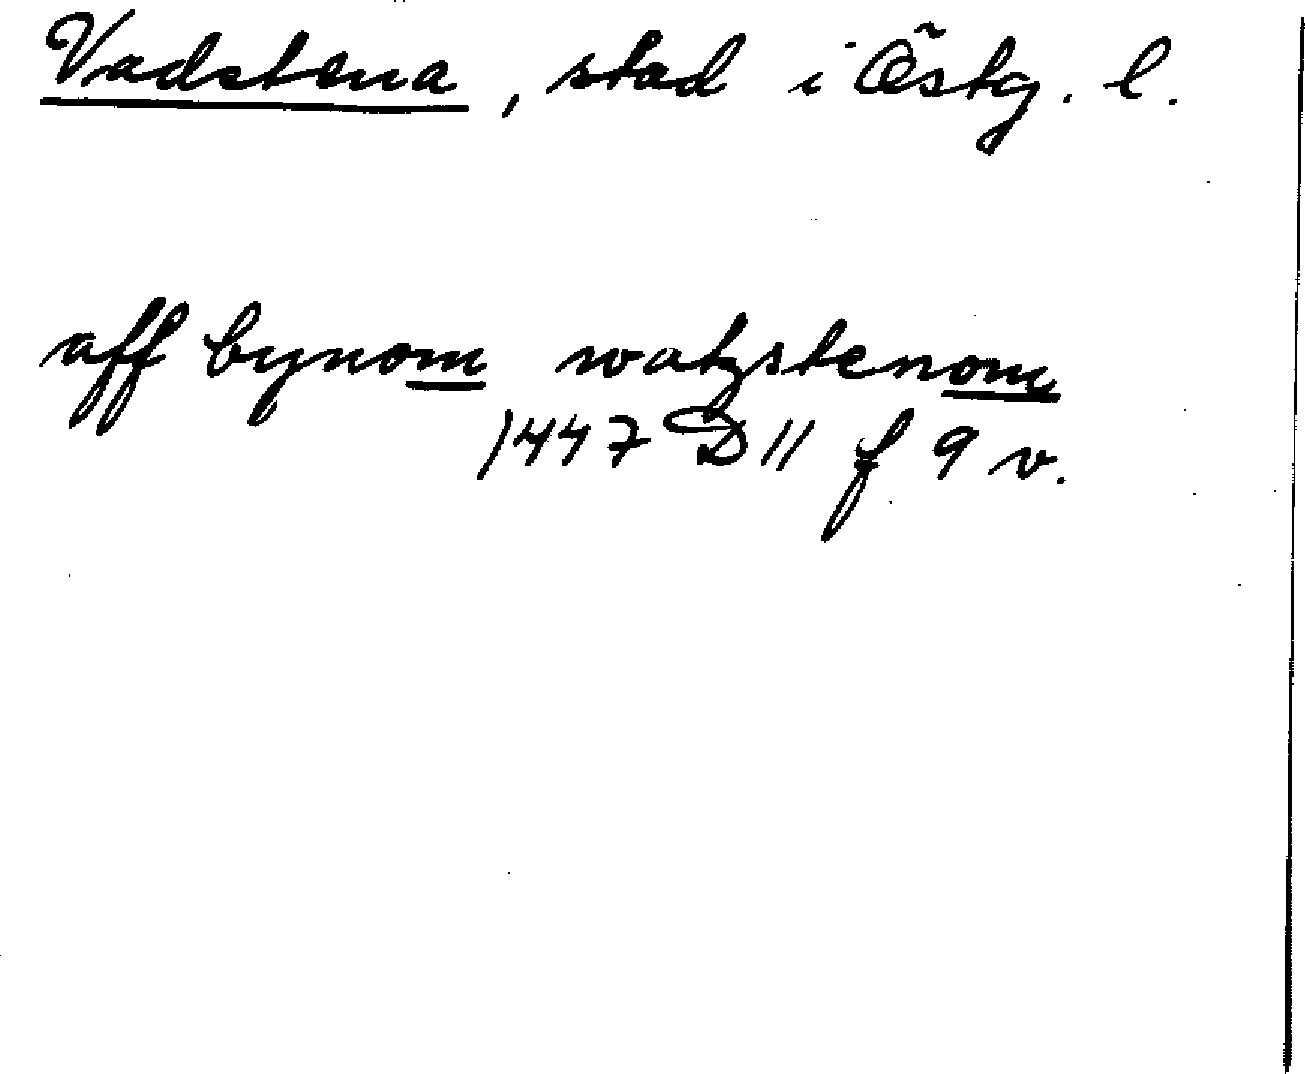 Vadstena, stad i Östg. l.
aff bynom watzstenom
1447 D 11 f 9 v.